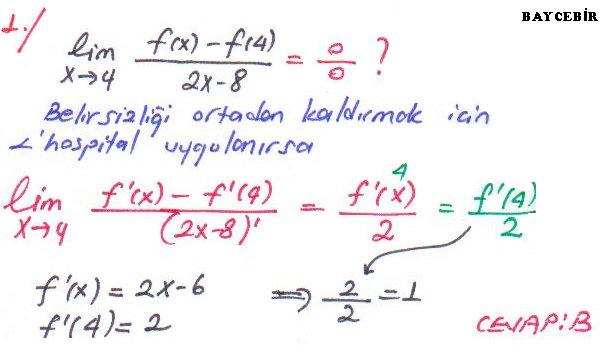 BAYCEBİR
1./ lim x→4 f(x) - f(4) / 2x-8 = 0/0 ?
Belirsizliği ortadan kaldırmak için
L'hospital uygulanırsa
lim x→4 f'(x) - f'(4) / (2x-8)' = f'(x) 4 / 2 = f'(4) / 2
f'(x) = 2x-6 ⇒ 2/2 = 1
f'(4) = 2
CEVAP: B